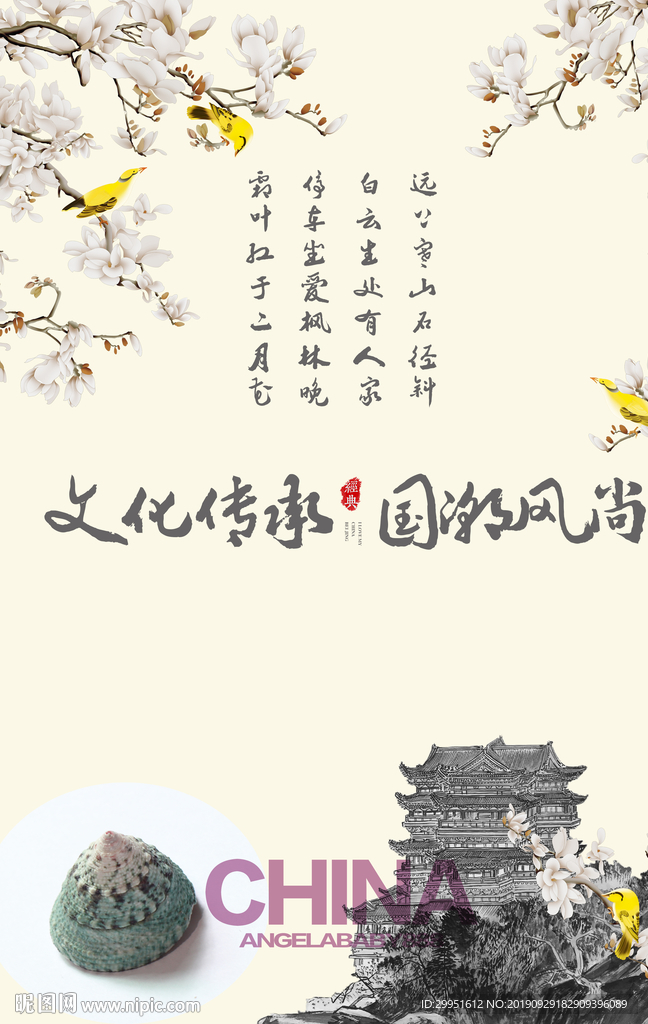 远上寒山石径斜
白云生处有人家
停车坐爱枫林晚
霜叶红于二月花
文化传承
經典
I LOVE MY
CHINA
BEIJING
国潮风尚
CHINA
ANGELABAB
昵图网 www.nipic.com
ID:29951612 NO:20190929182909396089